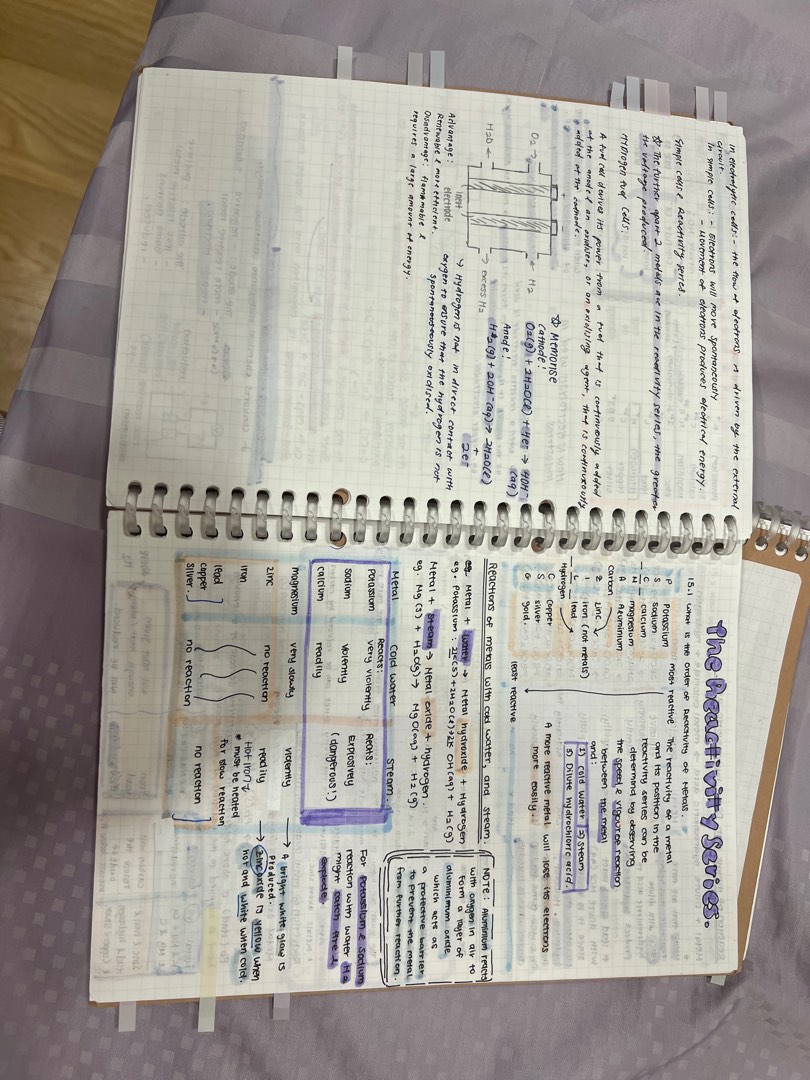 in electrolytic cells: - the flow of electrons is driven by the external
circuit.
In simple cells: - Electrons will move spontaneously
- Movement of electrons produces electrical energy.
Simple cells & Reactivity series.
The further apart 2 metals are in the reactivity series, the greater
the voltage produced!
Hydrogen fuel cells:
A fuel cell derives its power from a fuel that is continuously added
at the anode & an oxidiser, or an oxidising agent, that is continuously
added at the cathode.
- +
O2
H2
H2O
excess H2
inert
electrode
Memorise
Cathode:
O2(g) + 2H2O(l) + 4e- → 4OH-
(aq)
Anode:
H2(g) + 2OH-(aq) → 2H2O(l)
+
2e-
↳ Hydrogen is not in direct contact with
oxygen to ensure that the hydrogen is not
spontaneously oxidised.
Advantage:
Renewable & more efficient.
Disadvantage: flammable &
requires a large amount of energy.
The Reactivity Series.
15.1 What is the order of Reactivity of Metals.
P Potassium most reactive
S Sodium
C calcium
M magnesium
A Aluminium
carbon
Z zinc
I iron (not metals)
L lead
Hydrogen
C copper
S silver
G gold.
least reactive
The reactivity of a metal
and its position in the
reactivity series can be
determined by observing
the speed & vigour of reaction
between the metal
and:
1) cold water 2) steam
3) Dilute hydrochloric acid.
A more reactive metal will lose its electrons
more easily.
Reactions of metals with cold water, and steam
Metal + water → Metal hydroxide + Hydrogen
eg. Potassium: 2K(s) + 2H2O(l) → 2K OH(aq) + H2(g)
Metal + steam → Metal oxide + hydrogen.
eg. Mg(s) + H2O(g) → MgO(aq) + H2(g)
NOTE: Aluminium reacts
with oxygen in air to
form a layer of
aluminimum oxide
which acts as
a protective barrier
to prevent the metal
from further reaction.
Metal cold water steam.
Potassium Reacts: very violently Reacts: Explosively
sodium violently (dangerous!)
calcium readily
magnesium very slowly violently → A bright white glow is
produced.
zinc no reaction readily → zinc oxide is yellow when
hot and white when cold.
iron Hot iron & must be heated
for slow reaction
lead
copper
silver. no reaction no reaction
For potassium & sodium
reaction with water H2
might catch fire &
explode.